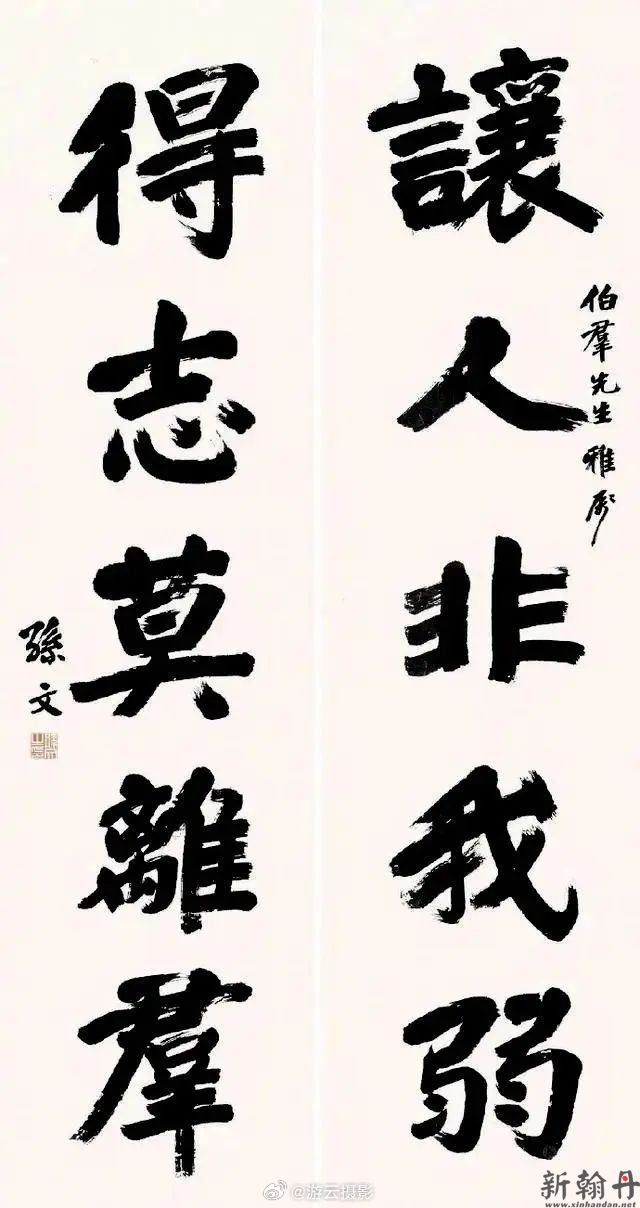 讓人非我弱
伯羣先生雅屬
得志莫離羣
孫文
@游云摄影
新翰丹
www.xinhandan.net